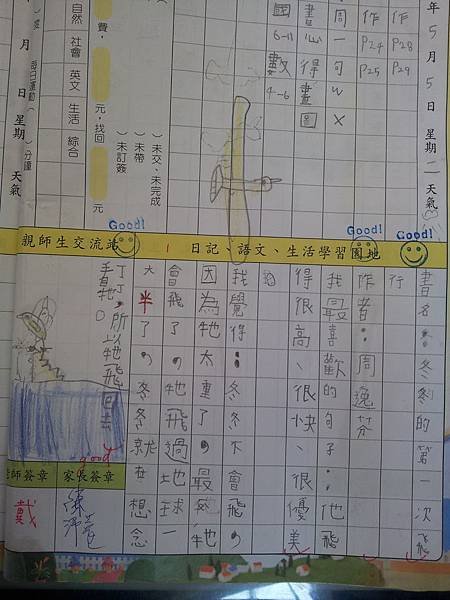 年 5 月 5 日 星期 二 天氣
作 P28 P29
作 P24 P25
周一句 W X
書心得畫圖
國 6-11 數 4-6
)未交、未完成
)未帶
)未訂簽
費，
元，找回
元
自然 社會 英文 生活 綜合
每日運動( )分鐘
月 日 星期 天氣
Good!
Good!
Good!
親師生交流站
日記、語文、生活學習園地
書名：冬冬的第一次飛
行
作者：周逸芬
我最喜歡的句子：他飛
得很高、很快、很優美
我覺得：冬冬不會飛，
因為牠太重了，最後牠
會飛了，牠飛過地球一
大半了，冬冬就在想念
丁丁，所以牠飛回去
看牠。
good
師簽章
家長簽章
戴